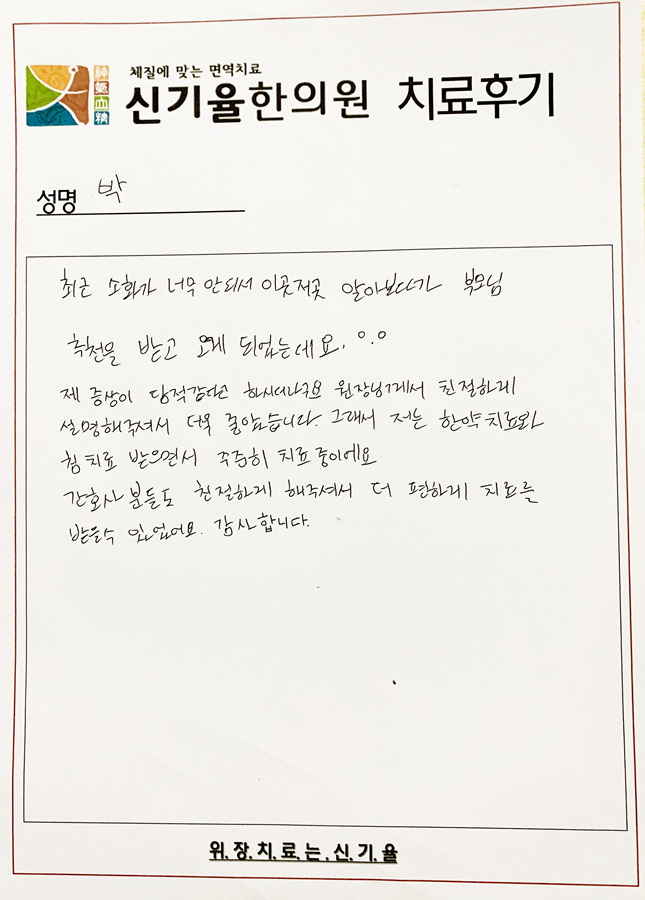 체질에 맞는 면역치료
신기율한의원 치료후기
神氣血精
성명 박
최근 소화가 너무 안되서 이곳저곳 알아보다가 부모님
추천을 받고 오게 되었는데요. ㅇ.ㅇ
제 증상이 담적같다고 하시더라구요 원장님께서 친절하게
설명해주셔서 더욱 좋았습니다. 그래서 저는 한약치료와
침치료 받으면서 꾸준히 치료중이에요
간호사분들도 친절하게 해주셔서 더 편하게 치료를
받을수 있었어요. 감사합니다.
위.장.치.료.는.신.기.율